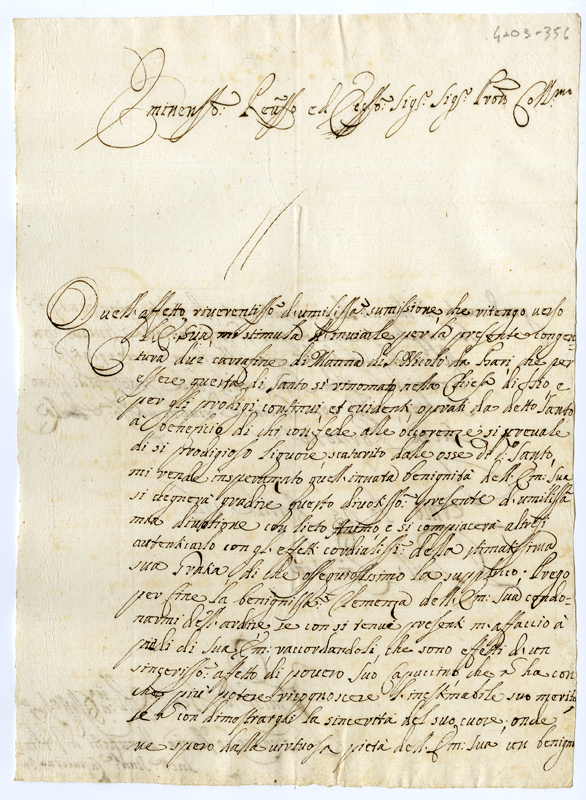 4203-356
Eminenss.º Reuss.º ed Ecss.º Sig.r Sig.r Pron Coll.mo
Quell affetto riverentiss.º d'umiliss.ª sumissione che ritengo verso
Sua mi stimula Inuiarle per la presente congen
tura due carrafine di Manna di S. Nicolò da Bari, che per
essere questa di Santo si rinomato nella Chiesa di Dio e
per gli prodigi continui et euidenti oprati da detto Santo
à beneficio di chi con fede alle occorenze si preuale
di si prodigioso liquore scaturito dalle osse di d.º Santo,
mi rende insperanzato quell innata benignità dell Em: Sua
si degnerà gradire questo diuotiss.º presente d'umiliss.ª
mia con lieto Animo e si compiacerà altresi
autenticarlo con gl'effetti cordialissi: della stimatissima
sua Grazia di che ossequiosissimo la supplico. Prego
per fine la benigniss.ª Clemenza dell Em: Sua condo-
narmi dell ardire se con si tenue presente m'affaccio à
piedi di sua Em: raccordandoli, che sono effetti di un
sincerisso: affetto di pouero suo Capuccino che nº ha con
che più potere ricognoscere l'inestimabile suo merito
se nº con dimostrargli la sincerità del suo cuore, onde
ne spero dalla virtuosa pietà dell Em: Sua un benigno